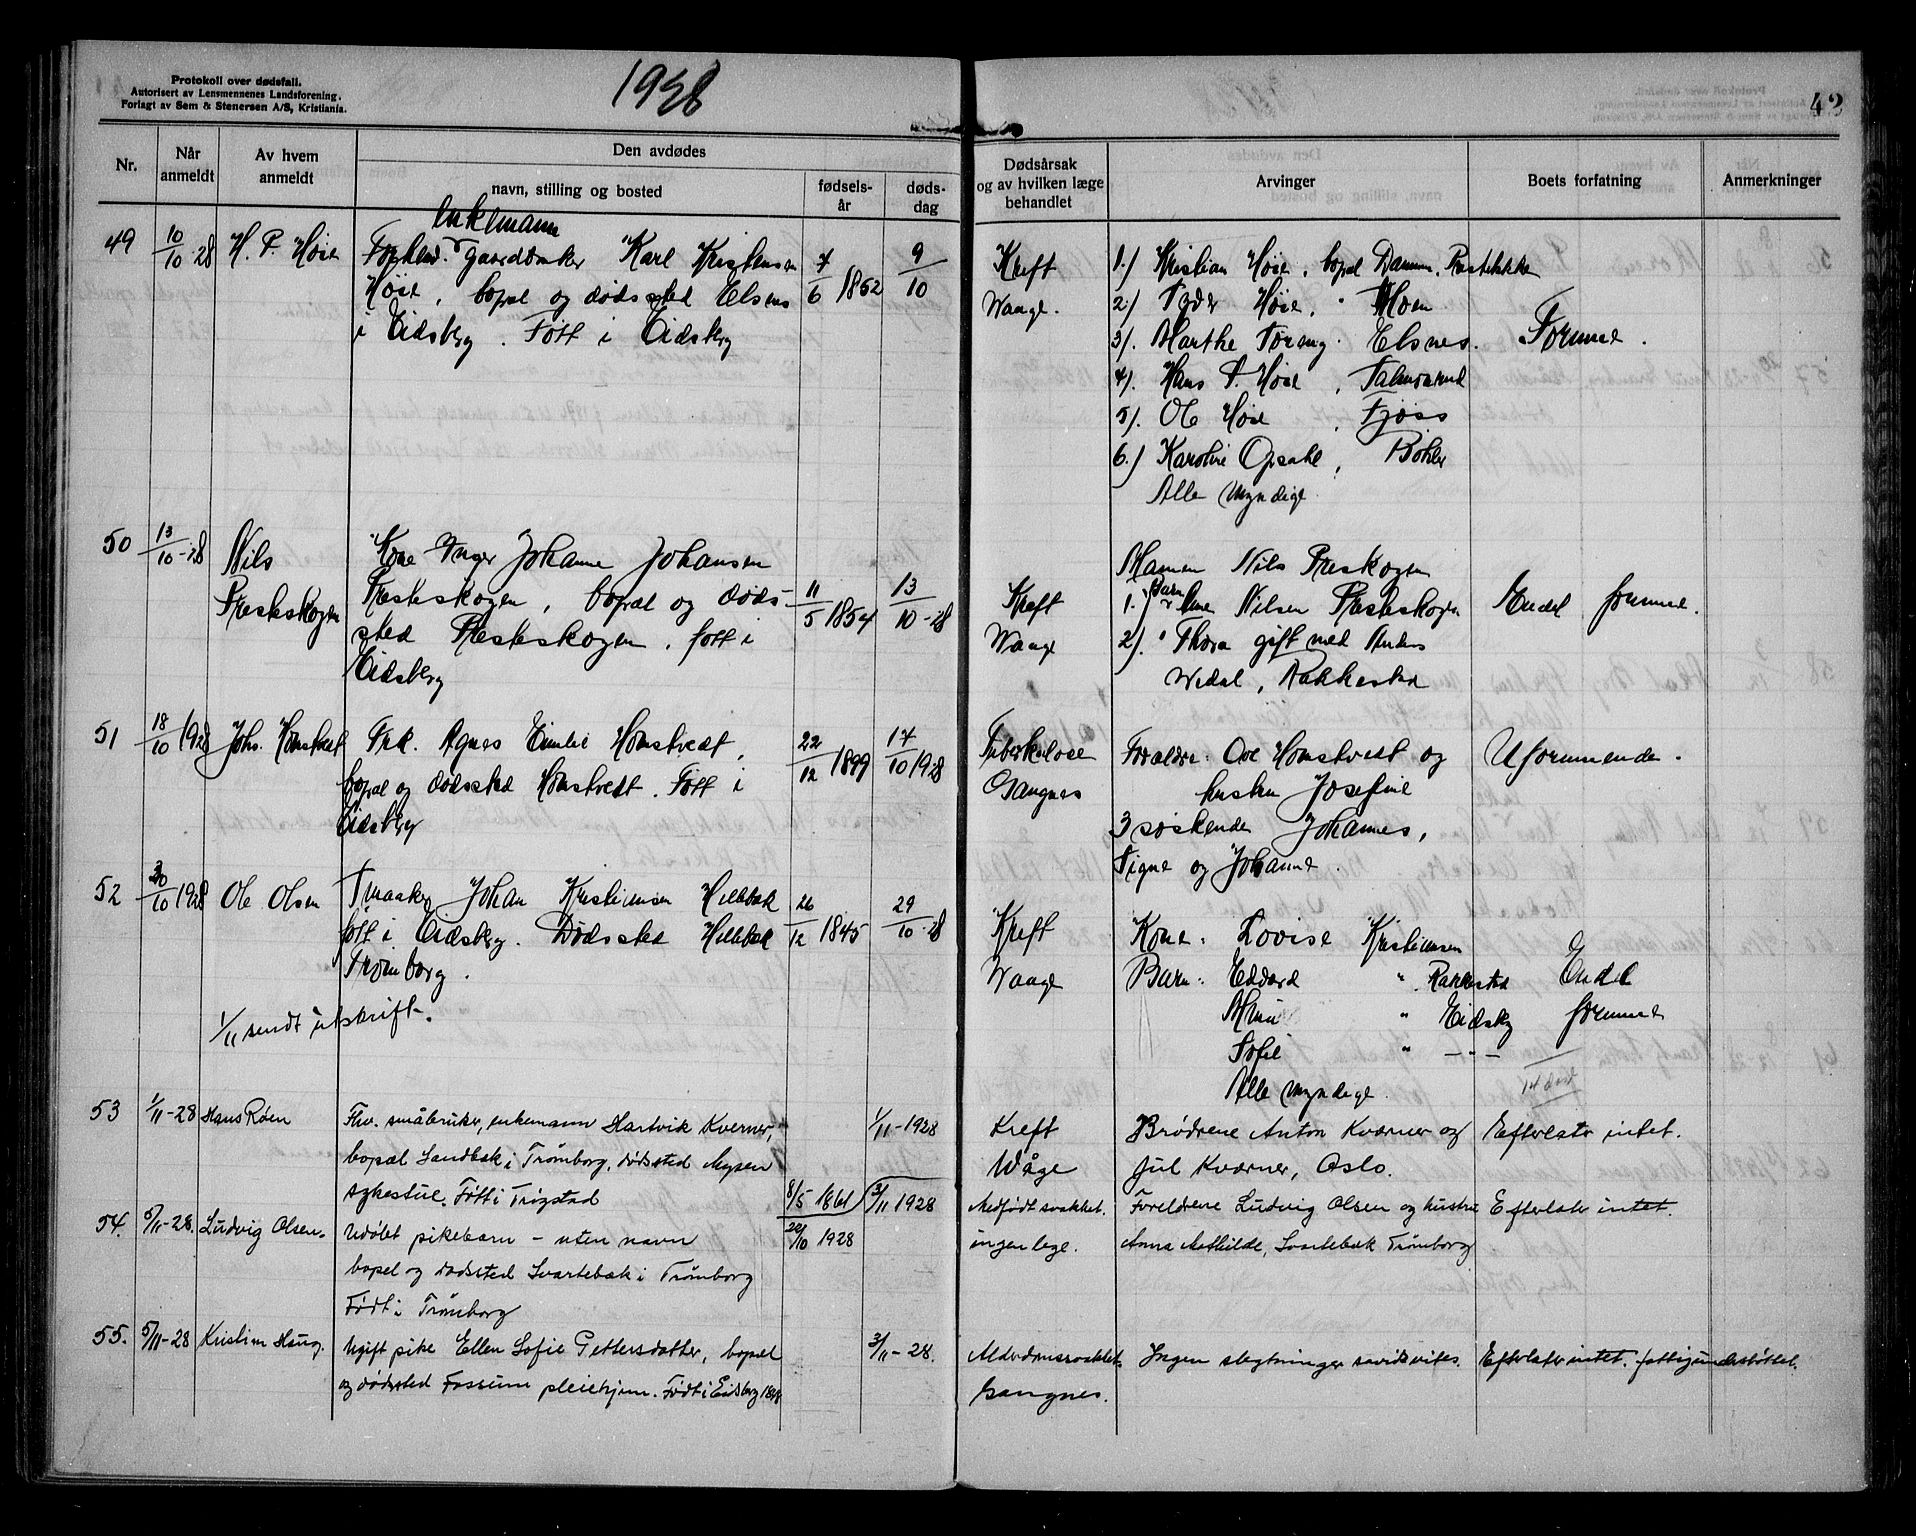 Protokoll over dødsfall.
Autorisert av Lensmennenes Landsforening.
Forlagt av Sem & Stenersen A/S, Kristiania.
1928
42
Nr.
Når anmeldt
Av hvem anmeldt
Den avdødes
navn, stilling og bosted
fødsels-år
døds-dag
Dødsårsak og av hvilken læge behandlet
Arvinger
Boets forfatning
Anmerkninger
49 10/10 28 H. P. Høie
enkemann
gaardbruker Karl Kristensen
Høie, bopæl og dødssted Elsnes
i Eidsberg. Født i Eidsberg
7/6 1862 9/10
Kreft
Waage.
1.) Kristian Høie, bopæl Damm,
2.) Peder Høie, " Moen
3). Marthe " Elsnes.
4). Hans P. Høie,
5). Ole Høie,
6.) Karoline Opsahl, Bøhler
Alle Myndige.
Formue.
50 13/10-28 Nils
Presteskogen
Kone Inger Johanne Johansen
Presteskogen, bopæl og døds-
sted Presteskogen, født i
Eidsberg
11/5 1854 13/10-28
Kreft
Waage
Mannen Nils Preskogen
1. Barn Nilsen Presteskogen
2). " Thora gift med Anders
Wedal, Rakkestad
Endel formue.
51 18/10 1928 Johs. Homstvedt
Frk. Agnes Emilie Homstvedt,
bopæl og dødssted Homstvedt. Født i
Eidsberg
22/12 1899 17/10 1928
Tuberkulose
Gangnes
Foreldre: Ove Homstvedt og
hustru Josefine
3 søskende Johannes,
Signe og Johanne.
Uformuende.
52 30/10 1928 Ole Olsen
Johan Kristiansen Hillebæk
født i Eidsberg. Dødssted Hillebæk
Trømborg.
26/12 1845 29/10-28
Kreft
Waage
Kone: Lovise Kristiansen
Barn: Edvard " Rakkestad
" Eidsberg
Sofie " —"—
Alle Myndige.
Endel
formue
1/11 sendt utskrift.
53 1/11-28 Hans Røen
Fhv. småbruker, enkemann Hartvik Kverner,
bopæl Sandbæk i Trømborg, dødssted Mysen
sykestue. Født i Trøgstad
8/5 1861 1/11-1928
Kreft
Wåge
Brødrene Anton Kværner og
Jul Kværner, Oslo.
Efterlater intet.
54. 5/11-28. Ludvig Olsen.
Udøbt pikebarn – uten navn
bopel og dødssted Svartebæk i Trømborg
Født i Trømborg
22/10 1928 3/11 1928
Medfødt svakhet.
ingen lege.
Foreldrene Ludvig Olsen og hustru
Anna Mathilde, Svartebæk Trømborg
Efterlater intet.
55. 5/11-28 Kristian Haug.
Ugift pike Ellen Sofie Pettersdatter, bopæl
og dødssted Fossum pleiehjem. Født i Eidsberg
3/11-28.
Alderdomssvakhet
Gangnes.
Ingen slegtninger savidt vites.
Efterlater intet. fattigunderstøttet.